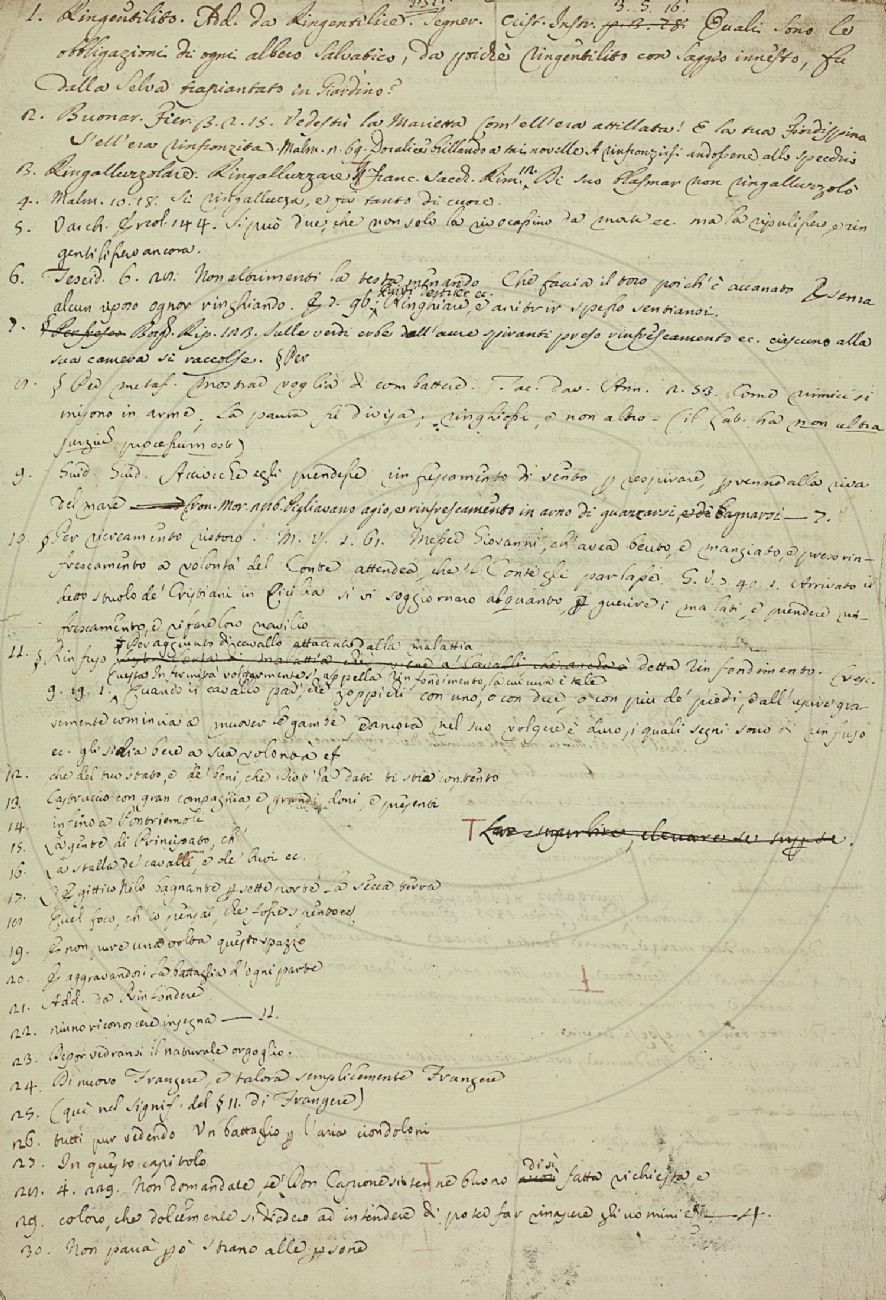 1. Ringentilito. Add. da Ringentilire. Segner. Crist. Instr. 3. 5. 16. Quali sono le
obbligazioni di ogni albero salvatico, da poichè ringentilito con saggio innesto, fu
dalla selva trapiantato in Giardino?
2. Buonar. Fier. 3. 2. 15. Vedestù la Marietta com'ell'era attillata! E la tua
S'ell'era rinfronzita. Malm. n. 69. Doralice brillando a tai novelle A rinfronzirsi andossene allo specchio
3. Ringalluzzolare. Ringalluzzare Franc. Sacch. Rim. Di suo blasmar non ringalluzzolò
4. Malm. 10. 18. Si ringalluzza, e fa tanto di cuore.
5. Varch. Ercol. 144. Si può dire, che non solo la rivocasino da morte ec. ma la ripulissero, e rin
gentilissero ancora.
6. Teseid. 6. 28. Non altrimenti la testa menando Che faccia il toro poich'è accanato E senza
alcun riposo ognor ringhiando. E 7. 96. Ringhiare, e anitrir spesso sentiansi.
7. Borgh. Rip. 123. Sulle verdi erbe dall'aure spiranti preso rinfrescamento ec. ciascuno alla
sua camera si raccolse. § Per
8. § Per metaf. Mostrar voglia di combattere. Tac. Dav. Ann. 2. 53. Come nimici si
misono in arme, la paura fe divisa, ringhiossi, e non altro = (il lat. ha non ultra
jurgia processum est)
9. Guid. Guid. Acciocch'egli prendesse rinfrescamento di vento per respirare, pervenne alla riva
del mare Cron. Mor. 226. Pigliavano agio, e rinfrescamento in arno di guazzarsi, e di bagnarsi — 7.
10. § Per ricreamento ristoro. M. V. 1. 61. Messer Giovanni, ch'avea beuto, e mangiato, e preso rin-
frescamento a volontà del Conte attendea, che 'l Conte gli parlasse. G. V. 7. 40. 1. Arrivato il
detto stuolo de' Cristiani in Cicilia si vi soggiornaro alquanto, per guerire i malati, e prendere rin-
frescamento, e rifare loro navilio
11. § Rinfuso Per aggiunto di cavallo attaccato dalla malattia detta Rinfondimento. Cresc.
Questa Infermità volgarmente s'appella Rinfondimento, la cui cura è tale
9. 19. 1. Quando il cavallo par, che zoppichi con uno, o con due, o con più de' piedi, e dall'uscire gra-
vemente comincia a muover le gambe, e ancora nel suo volgere è duro, i quali segni sono di rinfuso
ec. gli si dia bere a sua volontà ec
12. che del tuo stato, e de' beni, che Dio t'ha dati ti stia contento
13. Castruccio con gran compagnia, e grandi doni, e presenti
14. infino a Pontriemole
15. La gente di Principato, ch'
16. La stalla de' cavalli, e de' buoi ec.
17. L'Egittico Nilo bagnante per sette porte la secca terra
18. Quel foco, ch'io pensai, che fosse spento ec.
19. E non pure una volta questo spazzo
20. E aggravandosi la battaglia d'ogni parte
21. Add. da Rinfondere
22. niuno riconoscere insegna — 11.
23. Depor vedransi il naturale orgoglio.
24. Di nuovo Frangere, e talora semplicemente Frangere
25. (quì nel signif. del § II. di Frangere)
26. tutti pur vedendo Un battaglio per l'aria ciondoloni
27. In questo capitolo
28. 4. 229. Non domandate, se Don Capione si tenne buono di sì fatta richiesta e
29. coloro, che dolcemente si diedero ad intendere di poter far rinascere gli uomini e — 4.
30. Non pavià però strano alle persone